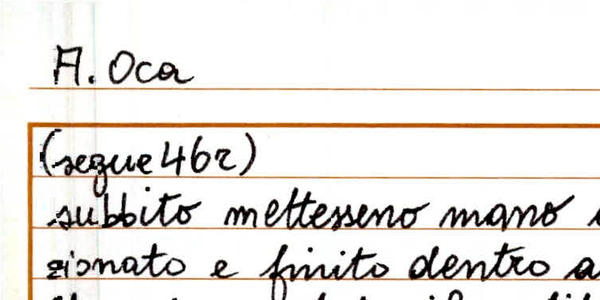 A. Oca
(segue 46r)
subbito mettesseno mano
zionato e finito dentro a